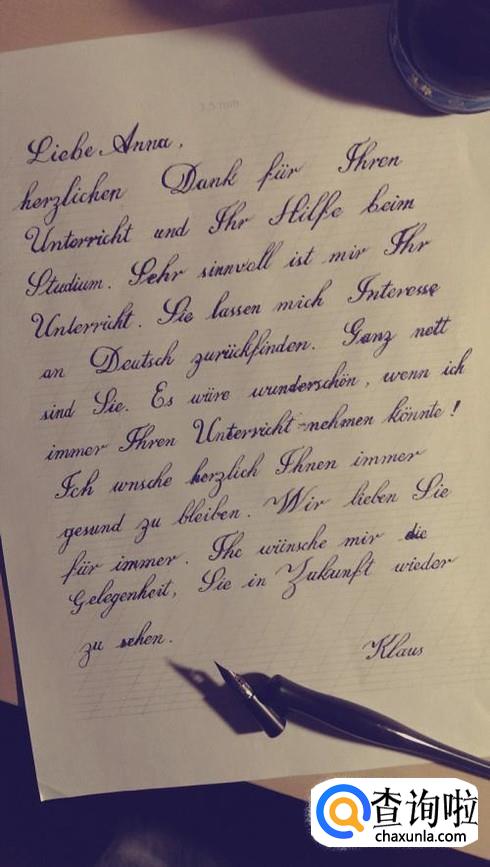 3.5 mm
Liebe Anna,
herzlichen Dank für Ihren
Unterricht und Ihr Hilfe beim
Studium. Sehr sinnvoll ist mir Ihr
Unterricht. Sie lassen mich Interesse
an Deutsch zurückfinden. Ganz nett
sind Sie. Es wäre wunderschön, wenn ich
immer Ihren Unterricht-nehmen könnte!
Ich wnsche herzlich Ihnen immer
gesund zu bleiben. Wir lieben Sie
für immer. Ihc wünsche mir die
Gelegenheit, Sie in Zukunft wieder
zu sehen.
Klaus
查询啦
chaxunla.com